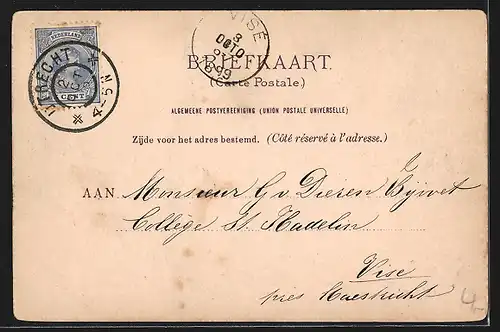 NEDERLAND
CENT
UTRECHT
2
OCT
4-5N
VISÉ
3
OCTO
1899
BRIEFKAART.
(Carte Postale.)
ALGEMEENE POSTVEREENIGING (UNION POSTALE UNIVERSELLE)
Zijde voor het adres bestemd. (Côté réservé à l'adresse.)
AAN Monsieur G v Dieren Bijvoet
Collège St. Hadelin
Visé
près Maestricht